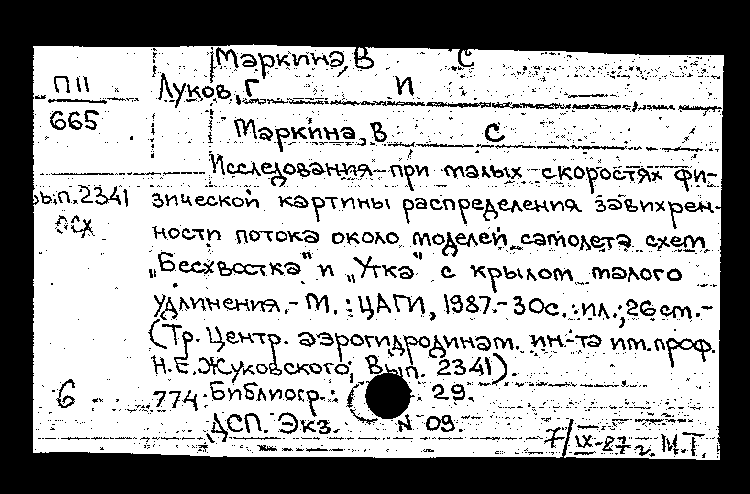 Маркина, В С
П II Луков, Г И
665 Маркина, В С
Исследования при малых скоростях фи-
вып. 2341 зической картины распределения завихрен-
осх ности потока около моделей самолета схем
„Бесхвостка" и „Утка" с крылом малого
удлинения. - М.: ЦАГИ, 1987. - 30с.: ил.; 26 см. -
(Тр. Центр. аэрогидродинам. ин-та им. проф.
Н.Е. Жуковского, Вып. 2341).
6 774 Библиогр.: 29.
ДСП. Экз. N 09.
7/IX-87 г. М.Т.